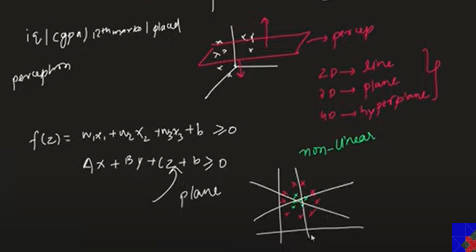 iq | cgpa | 12th marks | placed
perceptron
→ percep
2D → line
3D → plane
4D → hyperplane
f(z) = w₁x₁ + w₂x₂ + w₃x₃ + b ≥ 0
Ax + By + Cz + b ≥ 0
plane
non-linear